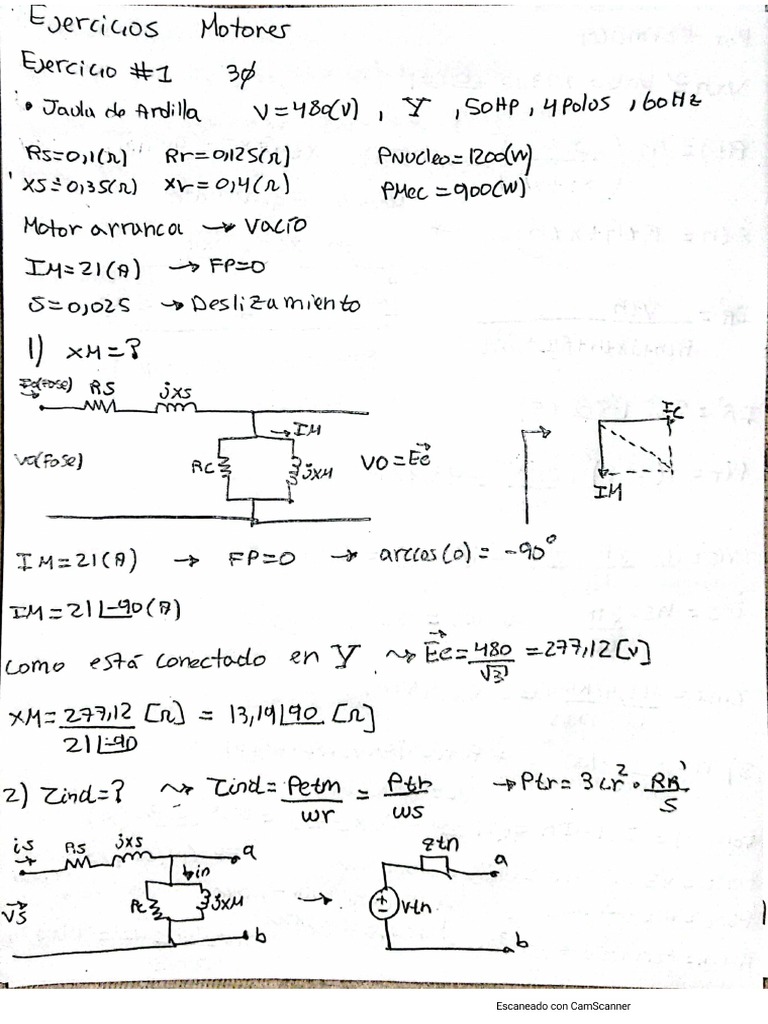 Ejercicios Motores
Ejercicio #1 3ϕ
• Jaula de Ardilla V=480(V) , Y , 50HP, 4 Polos , 60Hz
Rs=0,1(Ω) Rr=0,125(Ω) PNucleo=1200(W)
Xs=0,35(Ω) Xr=0,4(Ω) PMec=900(W)
Motor arranca → Vacío
IM=21(A) → FP=0
S=0,025 → Deslizamiento
1) XM=?
RS jXS
IM
Va(fase) RC jXM VO=Ec
IC
IM
IM=21(A) → FP=0 → arccos(0) = -90°
IM=21∠-90(A)
Como está conectado en Y ⇝ Ec=480/√3 =277,12[V]
XM=277,12/21∠-90 [Ω] = 13,19∠90 [Ω]
2) τind=? ⇝ τind=Petm/wr = Ptr/ws → Ptr=3ir²·RR'/S
is RS jXS a
im
Vs Rc jXM b
ztn a
Vtn b
Escaneado con CamScanner